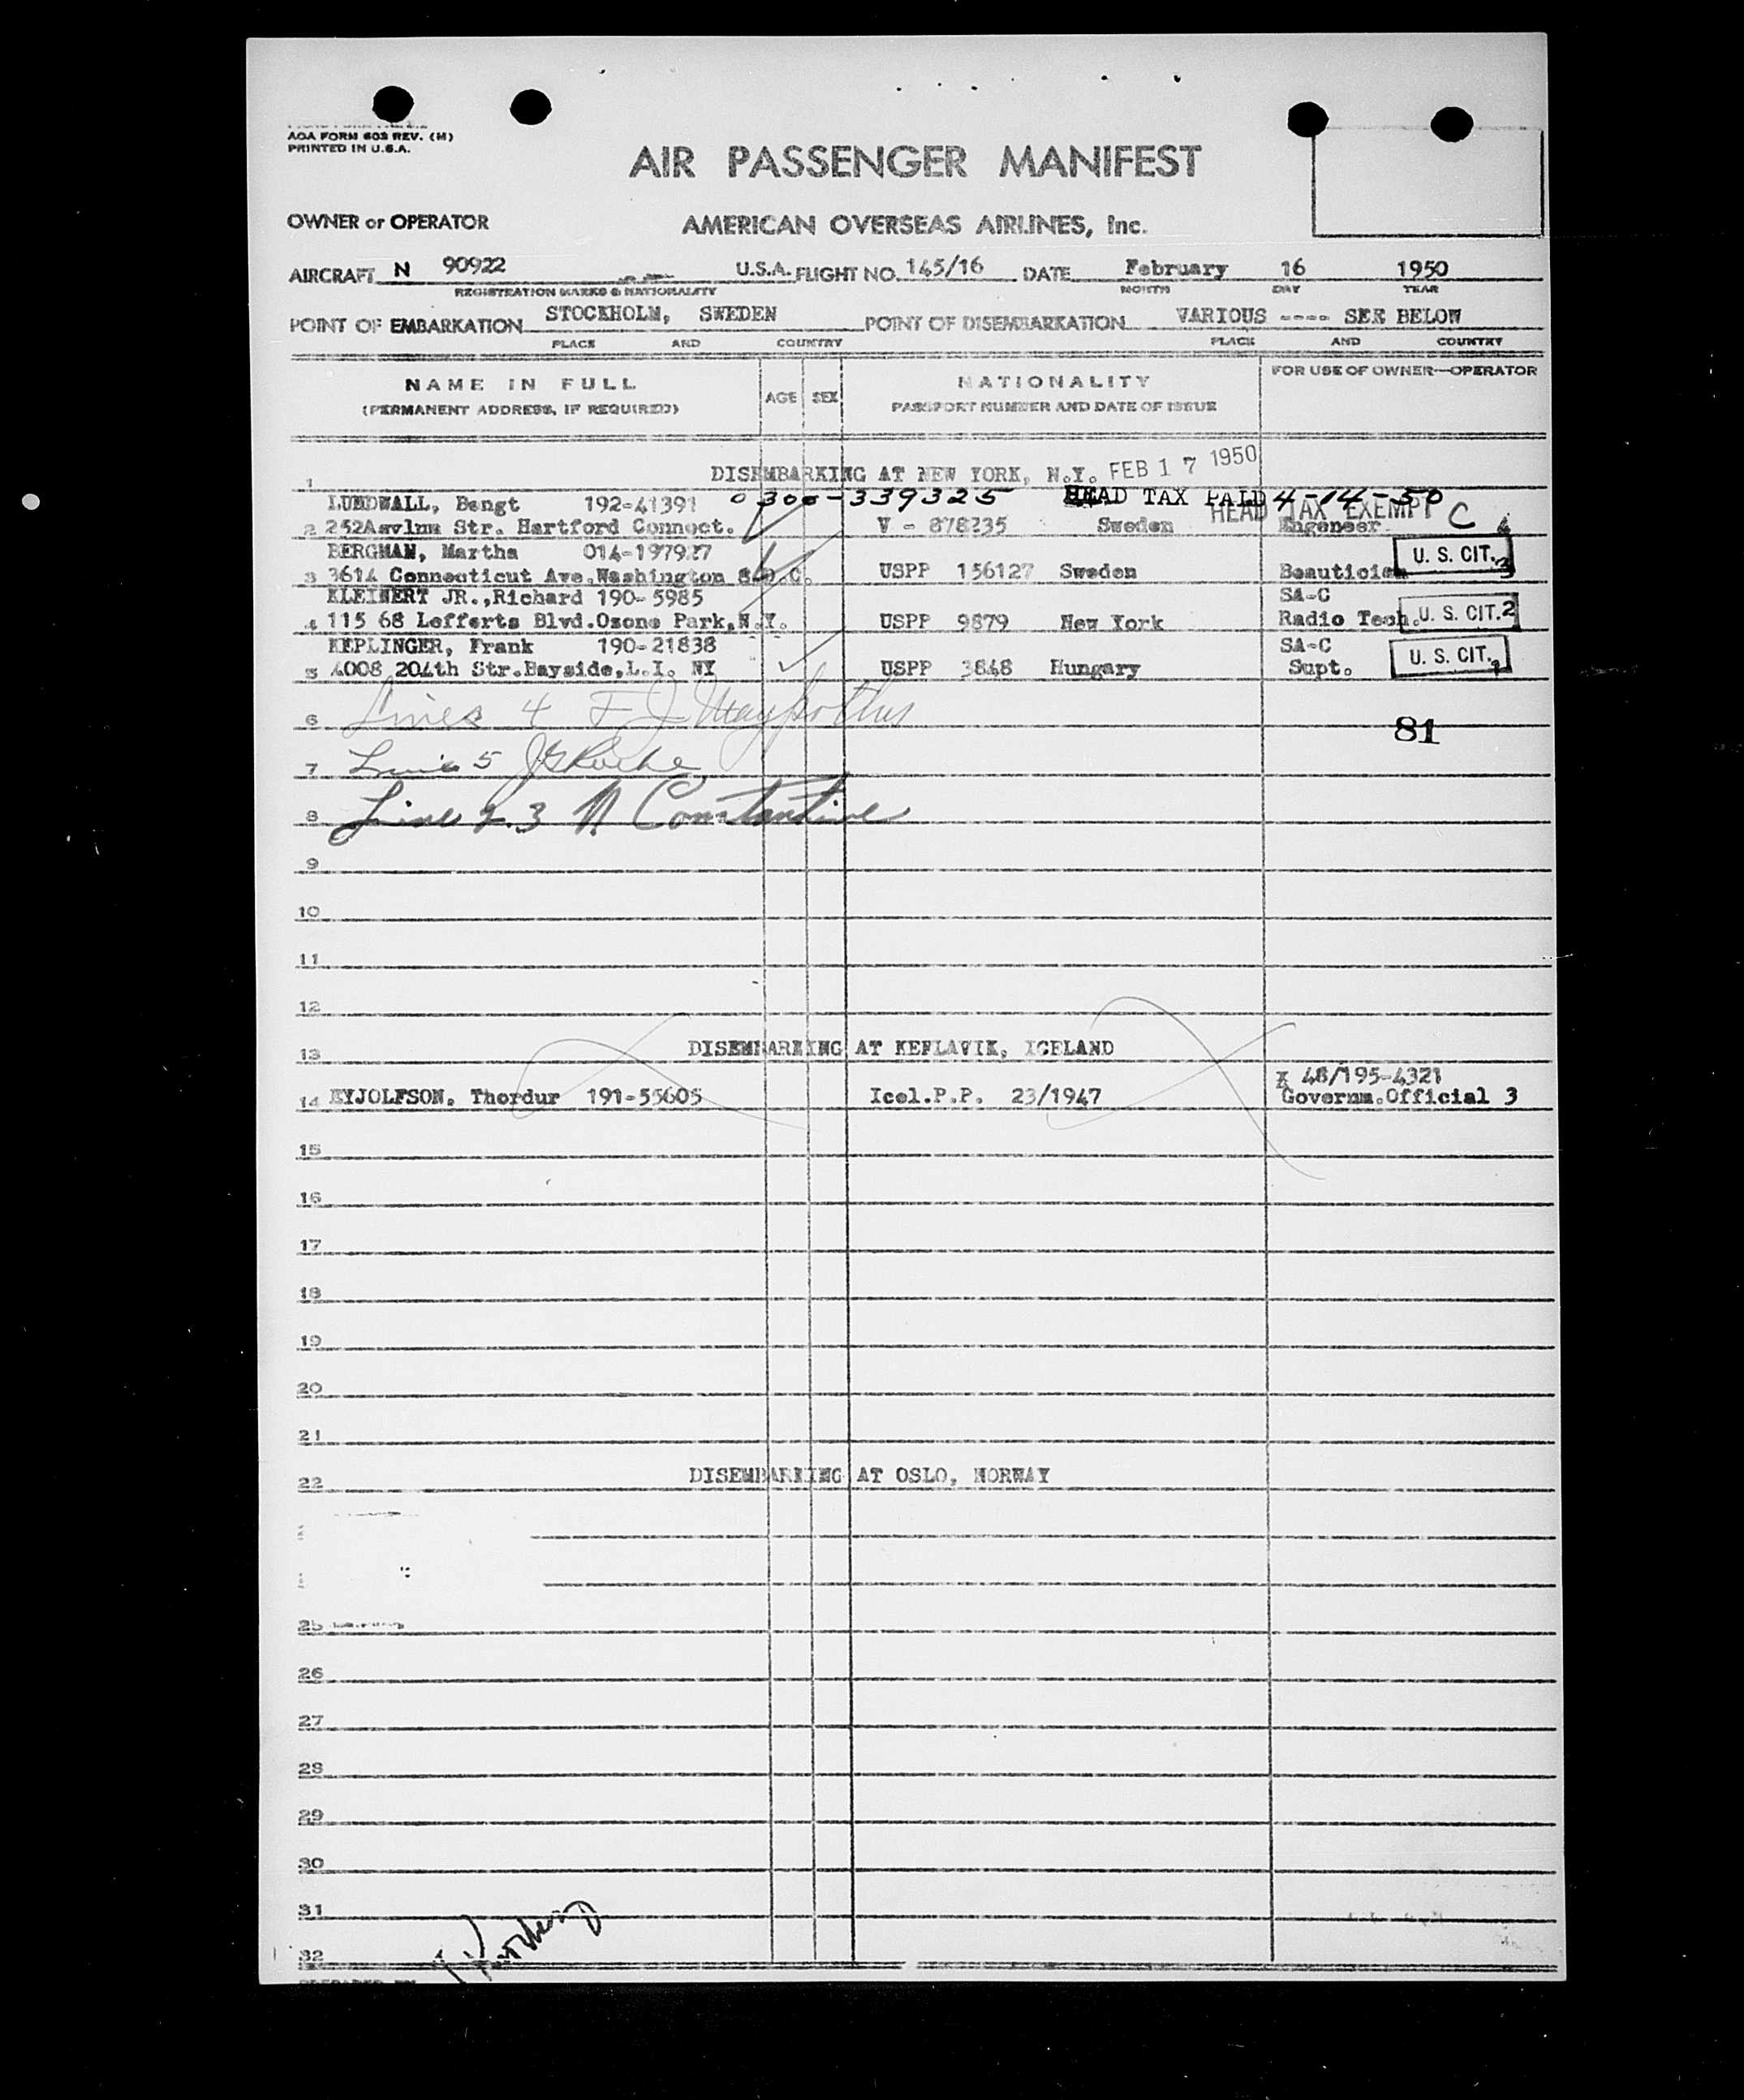 AOA FORM 603 REV. (M)
PRINTED IN U.S.A.
AIR PASSENGER MANIFEST
OWNER or OPERATOR AMERICAN OVERSEAS AIRLINES, Inc.
AIRCRAFT N 90922 U.S.A. FLIGHT NO. 145/16 DATE February 16 1950
REGISTRATION MARKS & NATIONALITY MONTH DAY YEAR
POINT OF EMBARKATION STOCKHOLM, SWEDEN POINT OF DISEMBARKATION VARIOUS ---- SEE BELOW
PLACE AND COUNTRY PLACE AND COUNTRY
NAME IN FULL AGE SEX NATIONALITY FOR USE OF OWNER—OPERATOR
(PERMANENT ADDRESS, IF REQUIRED) PASSPORT NUMBER AND DATE OF ISSUE
1 DISEMBARKING AT NEW YORK, N.Y. FEB 17 1950
LUNDWALL, Bengt 192-41391 0300-339325 HEAD TAX PAID 4-14-50
HEAD TAX EXEMPT C
2 252 Str. Hartford Connect. V - 878235 Sweden Engeneer
BERGMAN, Martha 014-197927 U. S. CIT. 3
3 3614 Connecticut Ave.Washington 8.D.C. USPP 156127 Sweden Beautician
KLEINERT JR.,Richard 190-5985 SA-C
4 115 68 Lefferts Blvd.Ozone Park,N.Y. USPP 9879 New York Radio Tech. U. S. CIT. 2
KEPLINGER, Frank 190-21838 SA-C
5 4008 204th Str.Bayside,L.I. NY USPP 3848 Hungary Supt. U. S. CIT. 1
6 Lines 4 F J
81
7 Line 5 J G Roche
8 Line 2.3 N Constantine
9
10
11
12
13 DISEMBARKING AT KEFLAVIK, ICELAND
X 48/195-4321
14 EYJOLFSON, Thordur 191-55605 Icel.P.P. 23/1947 Governm.Official 3
15
16
17
18
19
20
21
22 DISEMBARKING AT OSLO, NORWAY
25
26
27
28
29
30
31
32